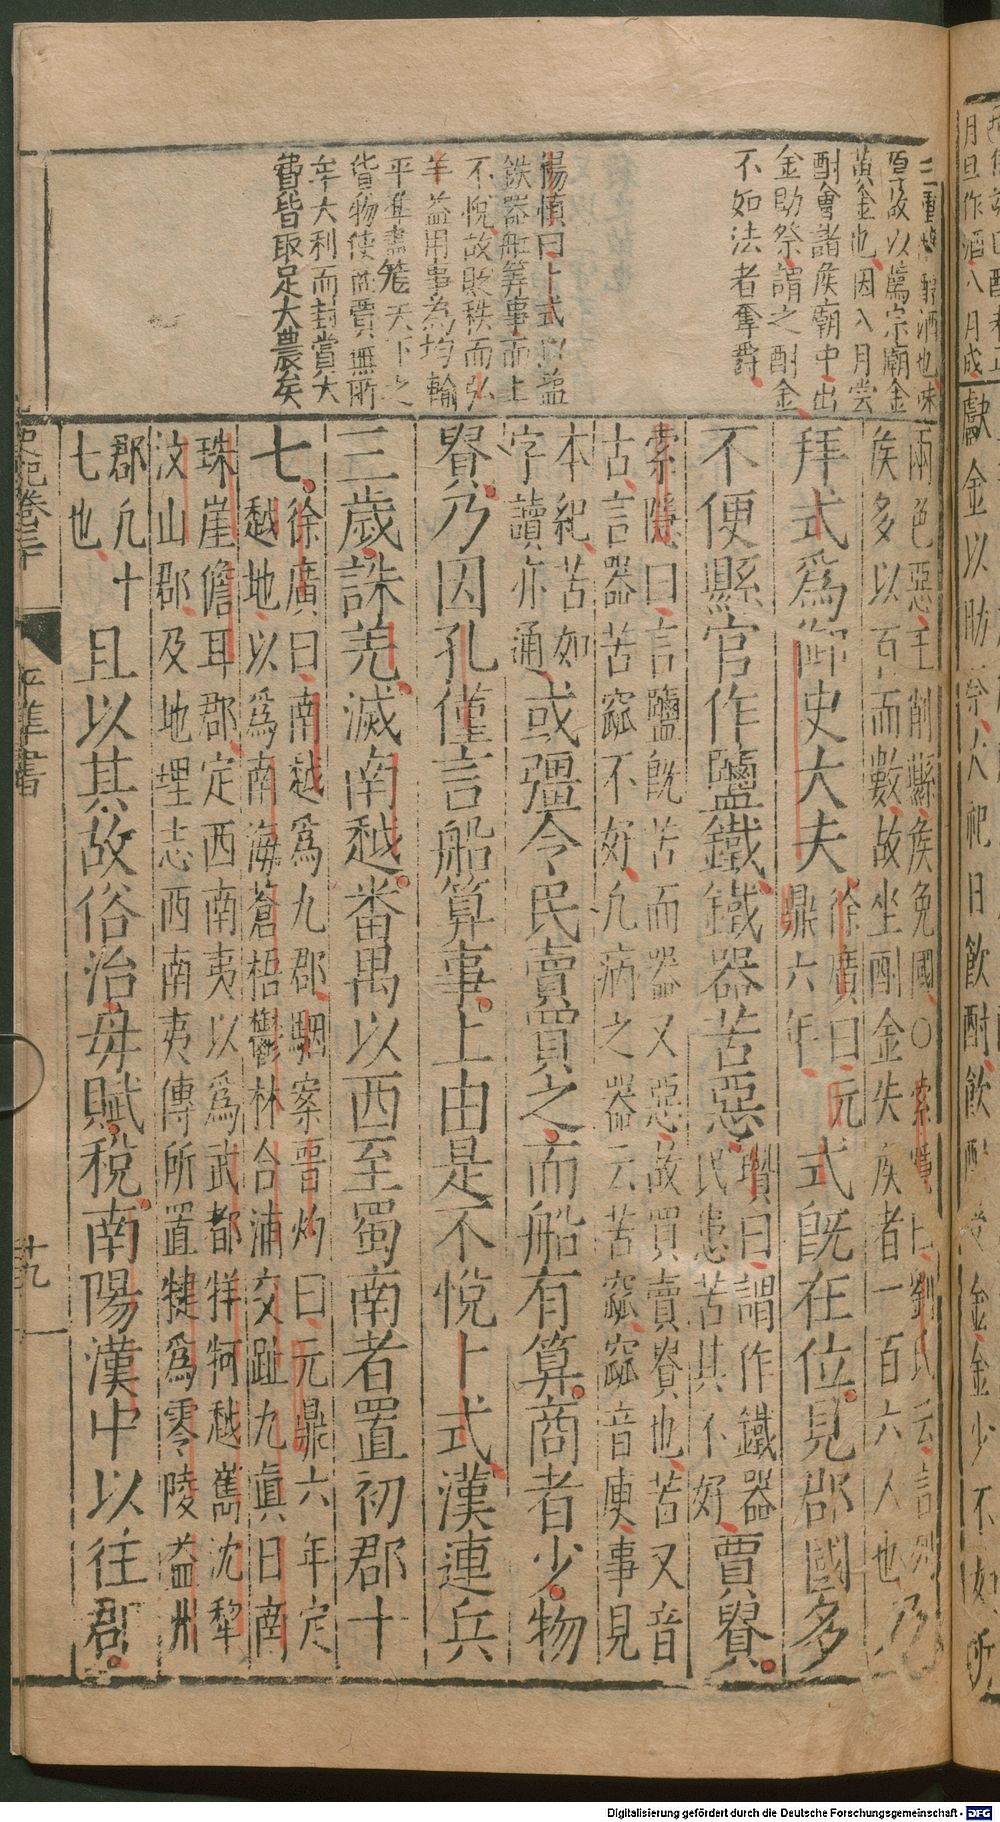 月旦作酒八月成
獻金以助祭大祀日飲酎飲酎
金金少不如所
三重釀醇酒也味
厚故以薦宗廟金
黃金也因八月嘗
酎會諸侯廟中出
金助祭謂之酎金
不如法者奪爵
楊慎曰卜式以鹽
鉄器船筭事而上
不悅故貶秩而弘
羊益用事為均輸
平準盡篭天下之
貨物使商賈無所
牟大利而封賞大
費皆取足大農矣
兩色惡王削縣侯免國○索隱曰劉氏云言列
侯多以百而數故坐酎金失侯者一百六人也
乃
拜式爲御史大夫
徐廣曰元
鼎六年
式既在位見郡國多
不便縣官作鹽鐵鐵器苦惡
瓚曰謂作鐵器
民患苦其不好
賈貴
索隱曰言鹽既苦而器又惡故買賣貴也苦又音
古言器苦窳不好凢病之器云苦窳窳音庾事見
本紀苦如
字讀亦通
或彊令民賣買之而船有算商者少物
貴乃因孔僅言船算事上由是不悅卜式漢連兵
三歲誅羌滅南越番禺以西至蜀南者置初郡十
七
徐廣曰南越爲九郡駰案晋灼曰元鼎六年定
越地以爲南海蒼梧鬱林合浦交趾九眞日南
珠崖儋耳郡定西南夷以爲武都牂牁越嶲沈犂
汶山郡及地理志西南夷傳所置犍爲零陵益州
郡凢十
七也
且以其故俗治毋賦稅南陽漢中以往郡
史記卷三十
平準書
十九
Digitalisierung gefördert durch die Deutsche Forschungsgemeinschaft - DFG